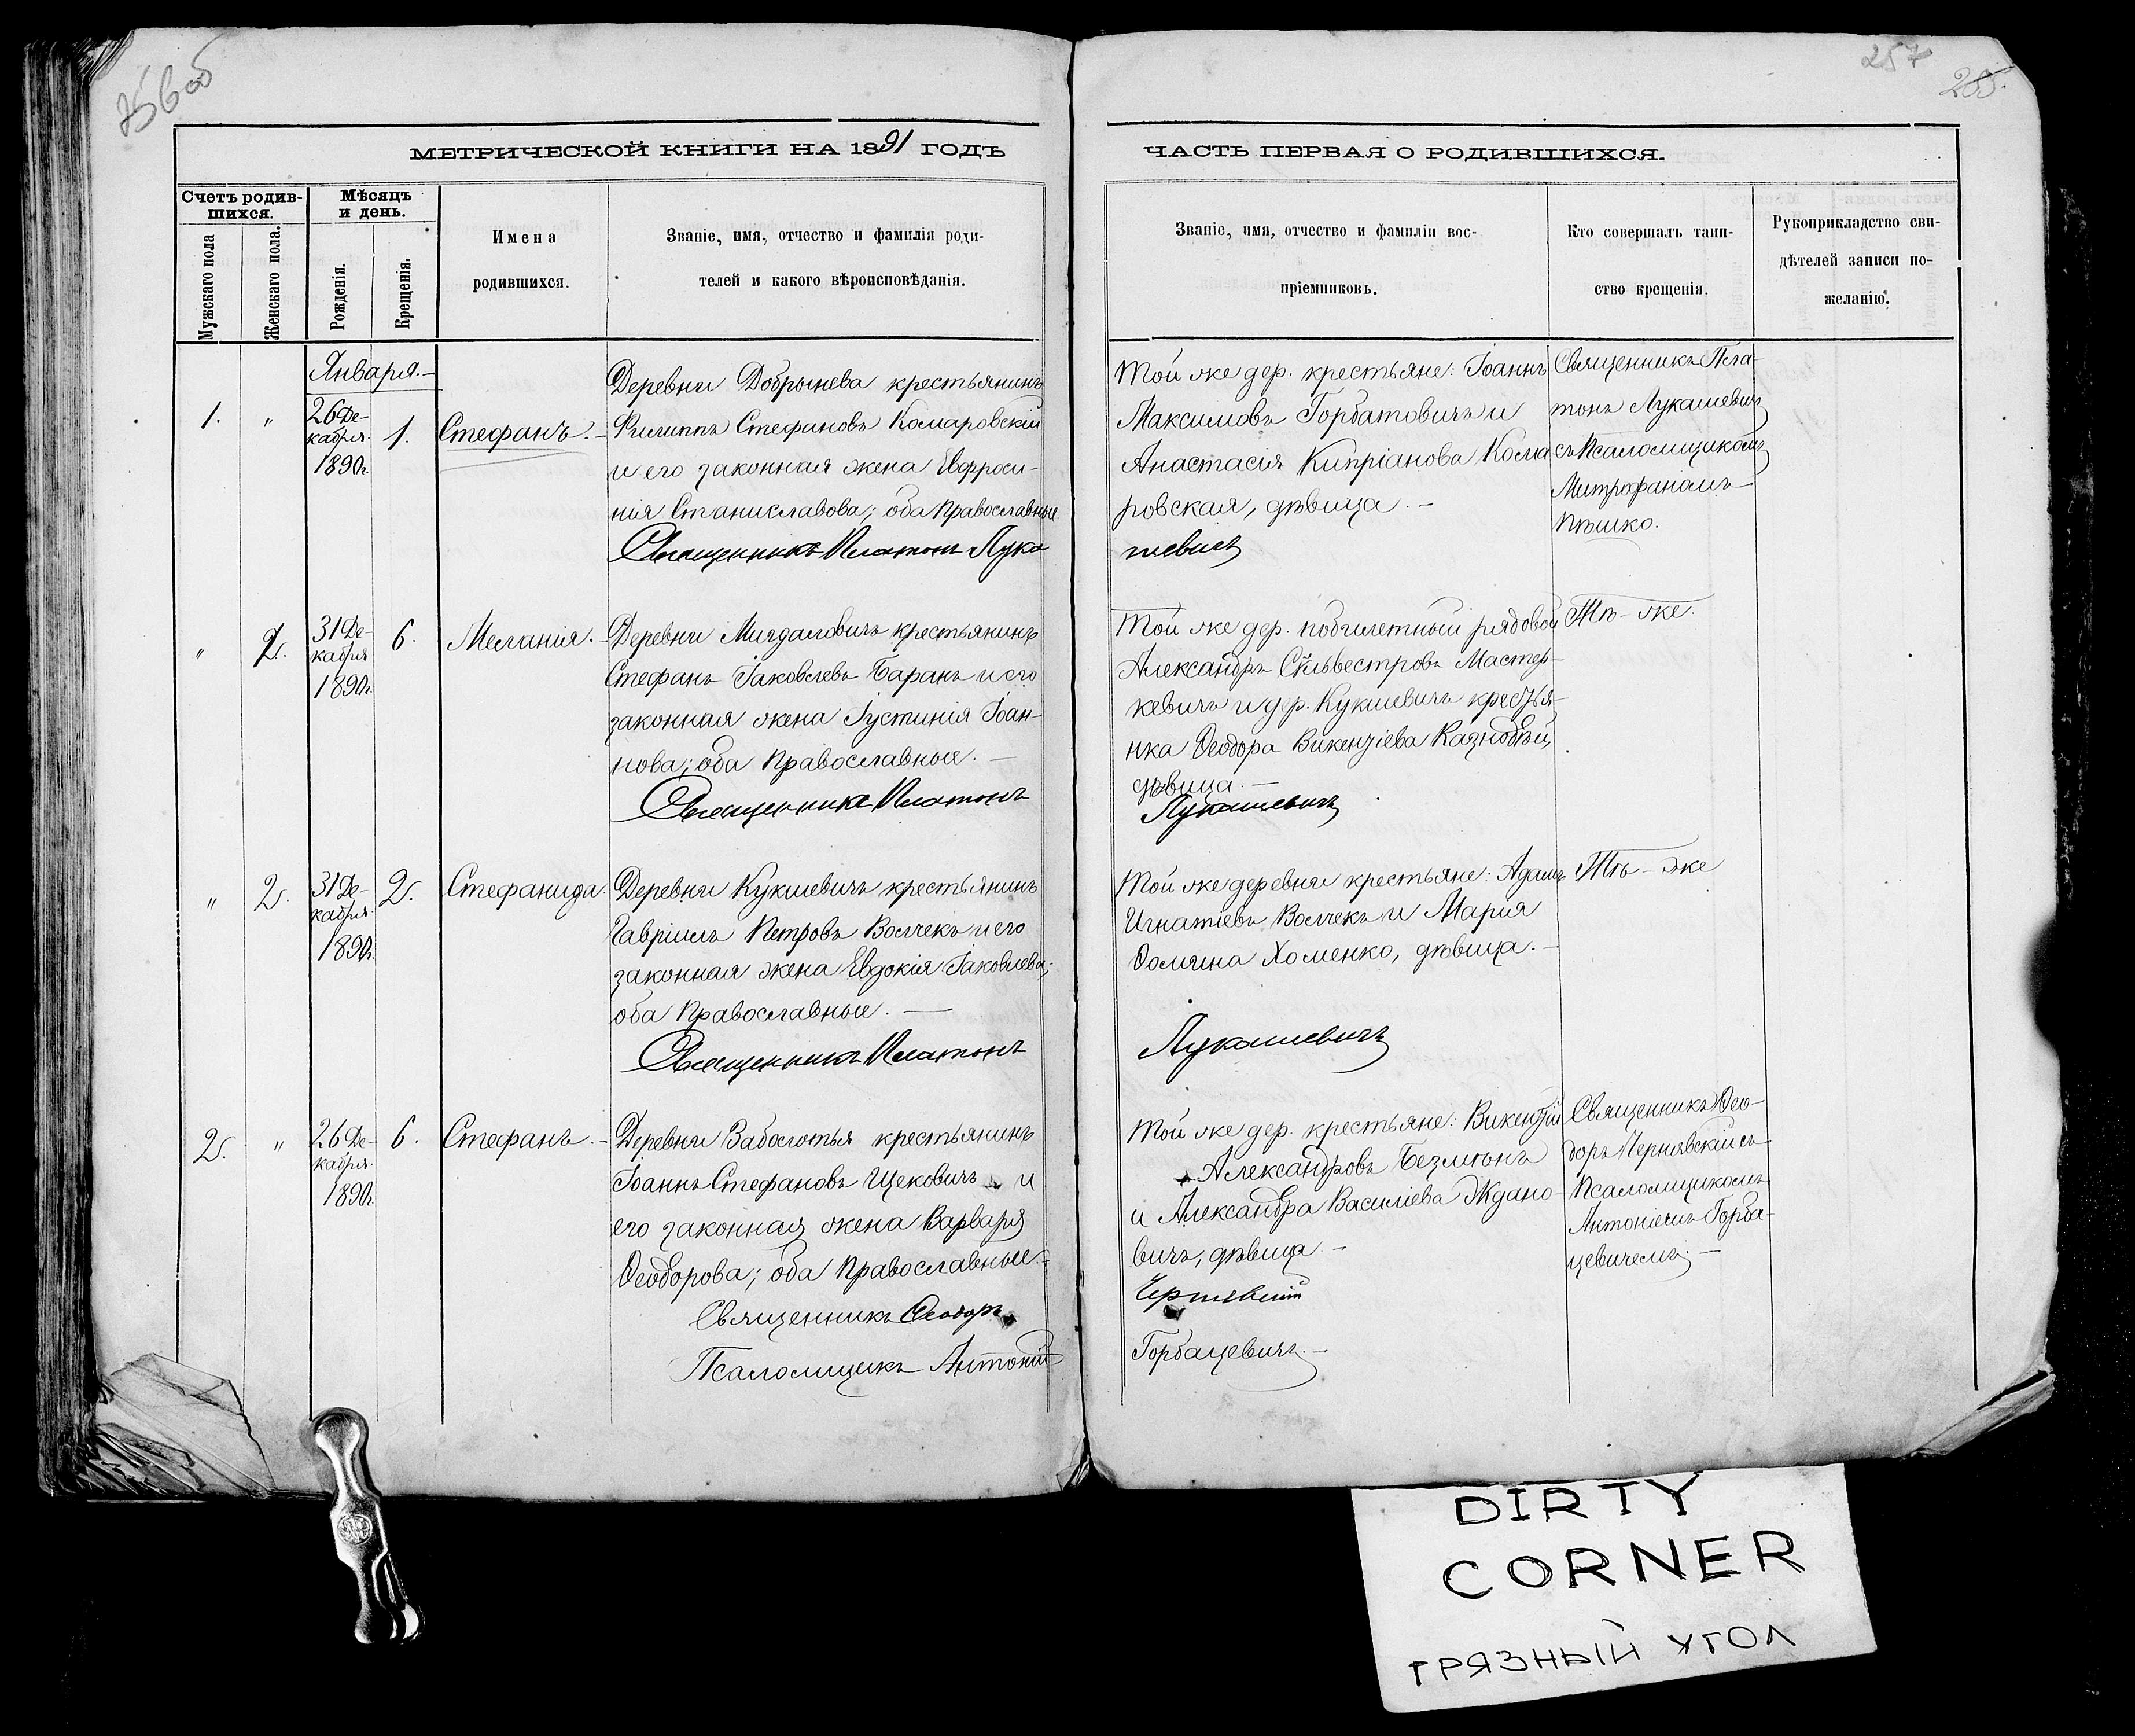 256 об
257
255.
МЕТРИЧЕСКОЙ КНИГИ НА 1891 ГОДЪ
ЧАСТЬ ПЕРВАЯ О РОДИВШИХСЯ.
Счетъ родив-
шихся.
Мужскаго пола
Женскаго пола.
Мѣсяцъ
и день.
Рожденія.
Крещенія.
Имена
родившихся.
Званіе, имя, отчество и фамилія роди-
телей и какого вѣроисповѣданія.
Званіе, имя, отчество и фамиліи вос-
пріемниковъ.
Кто совершалъ таин-
ство крещенія.
Рукоприкладство сви-
дѣтелей записи по-
желанію.
Января.-
1.
"
26 Де-
кабря.
1890г.
1.
Стефанъ.-
Деревни Добрынева крестьянинъ
Филиппъ Стефановъ Комаровскій
и его законная жена Евфроси-
нія Станиславова; оба Православные.
Священникъ Платонъ Лука
Той же дер. крестьяне: Іоаннъ
Максимовъ Горбатовичъ и
Анастасія Кипріанова Кома
ровская, дѣвица.-
шевичъ
Священникъ Пла-
тонъ Лукашевичъ
съ Псаломщикомъ
Митрофаномъ
Пѣшко.
"
2.
31 Де-
кабря
1890г.
6.
Меланія.-
Деревни Мигдаловичъ крестьянинъ
Стефанъ Іаковлевъ Баранъ и его
законная жена Іустинія Іоан-
нова; оба Православные.-
Священникъ Платонъ
Той же дер. побилетный рядовой
Александръ Сильвестровъ Мастер-
кевичъ и дер. Кукшевичъ крестья-
нка Ѳеодора Викентіева
дѣвица.-
Лукашевичъ
Тѣ-же.
"
2.
31 Де-
кабря.
1890г.
2.
Стефанида.
Деревни Кукшевичъ крестьянинъ
Гавріилъ Петровъ Волчекъ и его
законная жена Евдокія Іаковлева;
оба Православные.-
Священникъ Платонъ
Той же деревни крестьяне: Адамъ
Игнатіевъ Волчекъ и Марія
Ѳомина Хоменко, дѣвица.-
Лукашевичъ
Тѣ-же
2.
"
26 Де-
кабря.
1890г.
6.
Стефанъ.-
Деревни Заболотья крестьянинъ
Іоаннъ Стефановъ Щековичъ и
его законная жена Варвара
Ѳеодорова; оба Православные.-
Священникъ Ѳеодоръ
Псаломщикъ Антоній
Той же дер. крестьяне: Викентій
Александровъ Безлюнъ
и Александра Василіева Ждано-
вичъ, дѣвица-
Чернявскій
Горбацевичъ.-
Священникъ Ѳео-
доръ Чернявскій съ
Псаломщикомъ
Антоніемъ Горба-
цевичемъ.-
DIRTY
CORNER
ГРЯЗНЫЙ УГОЛ